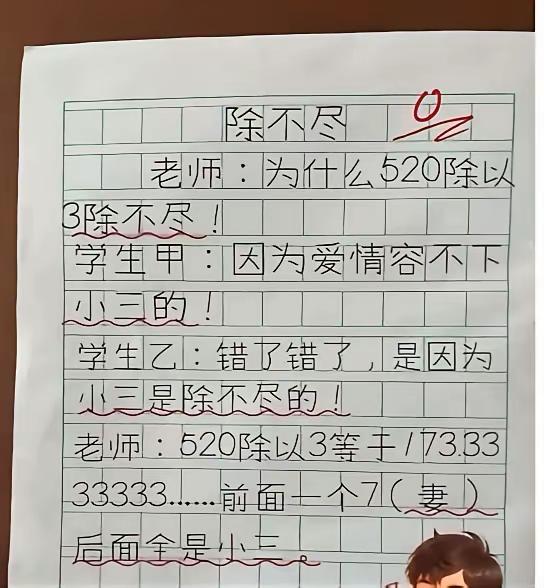 除不尽
0
老师：为什么520除以
3除不尽！
学生甲：因为爱情容不下
小三的！
学生乙：错了错了，是因为
小三是除不尽的！
老师：520除以3等于173.33
33333……前面一个7（妻）
后面全是小三。